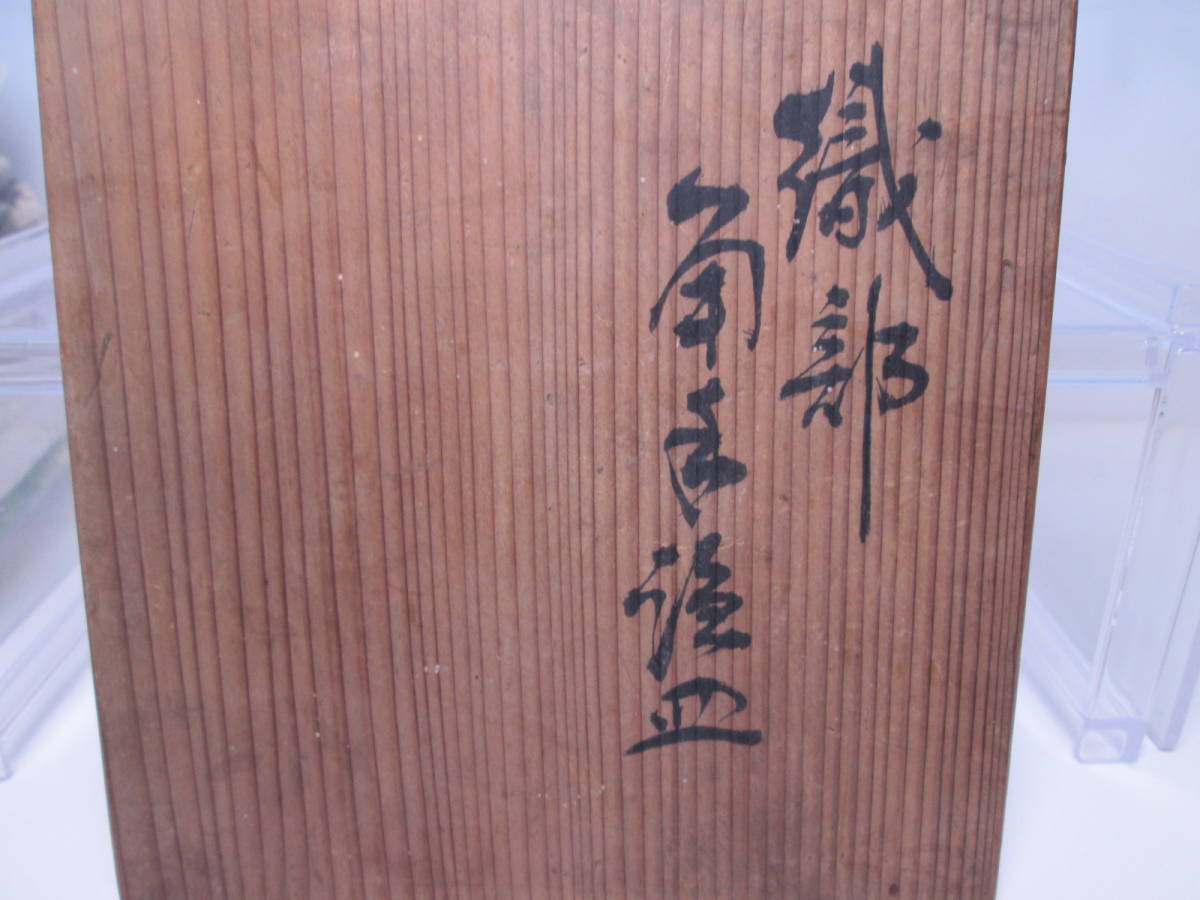 織部
角手塩皿